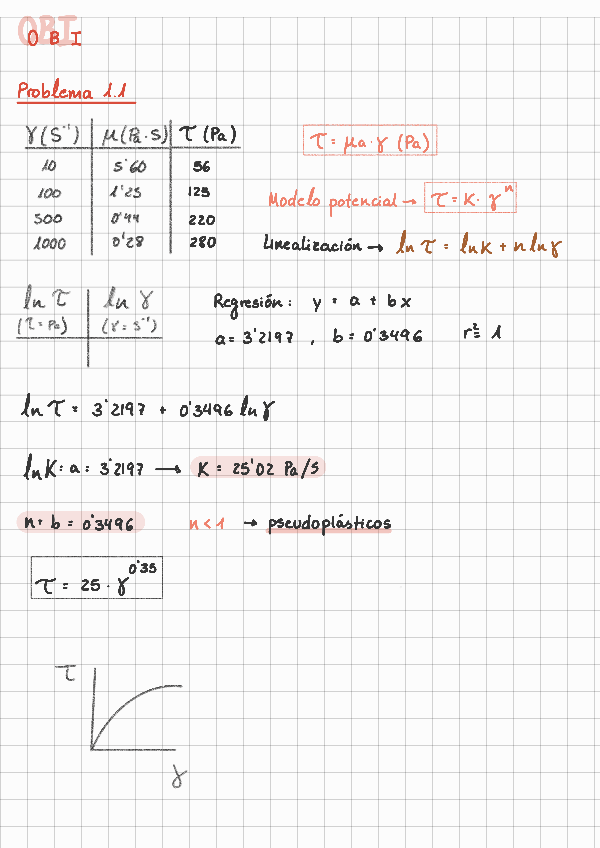 OBI
O B I
Problema 1.1
γ(S⁻¹) μ(Pa·s) τ(Pa)
10 5'60 56
100 1'25 125
500 0'44 220
1000 0'28 280
τ = μa·γ (Pa)
Modelo potencial → τ = K·γⁿ
Linealización → ln τ = ln K + n ln γ
ln τ ln γ
(τ = Pa) (γ = S⁻¹)
Regresión: y = a + bx
a = 3'2197 , b = 0'3496 r² = 1
ln τ = 3'2197 + 0'3496 ln γ
ln K = a = 3'2197 → K = 25'02 Pa/s
n = b = 0'3496 n < 1 → pseudoplásticos
τ = 25 · γ^0'35
τ
γ